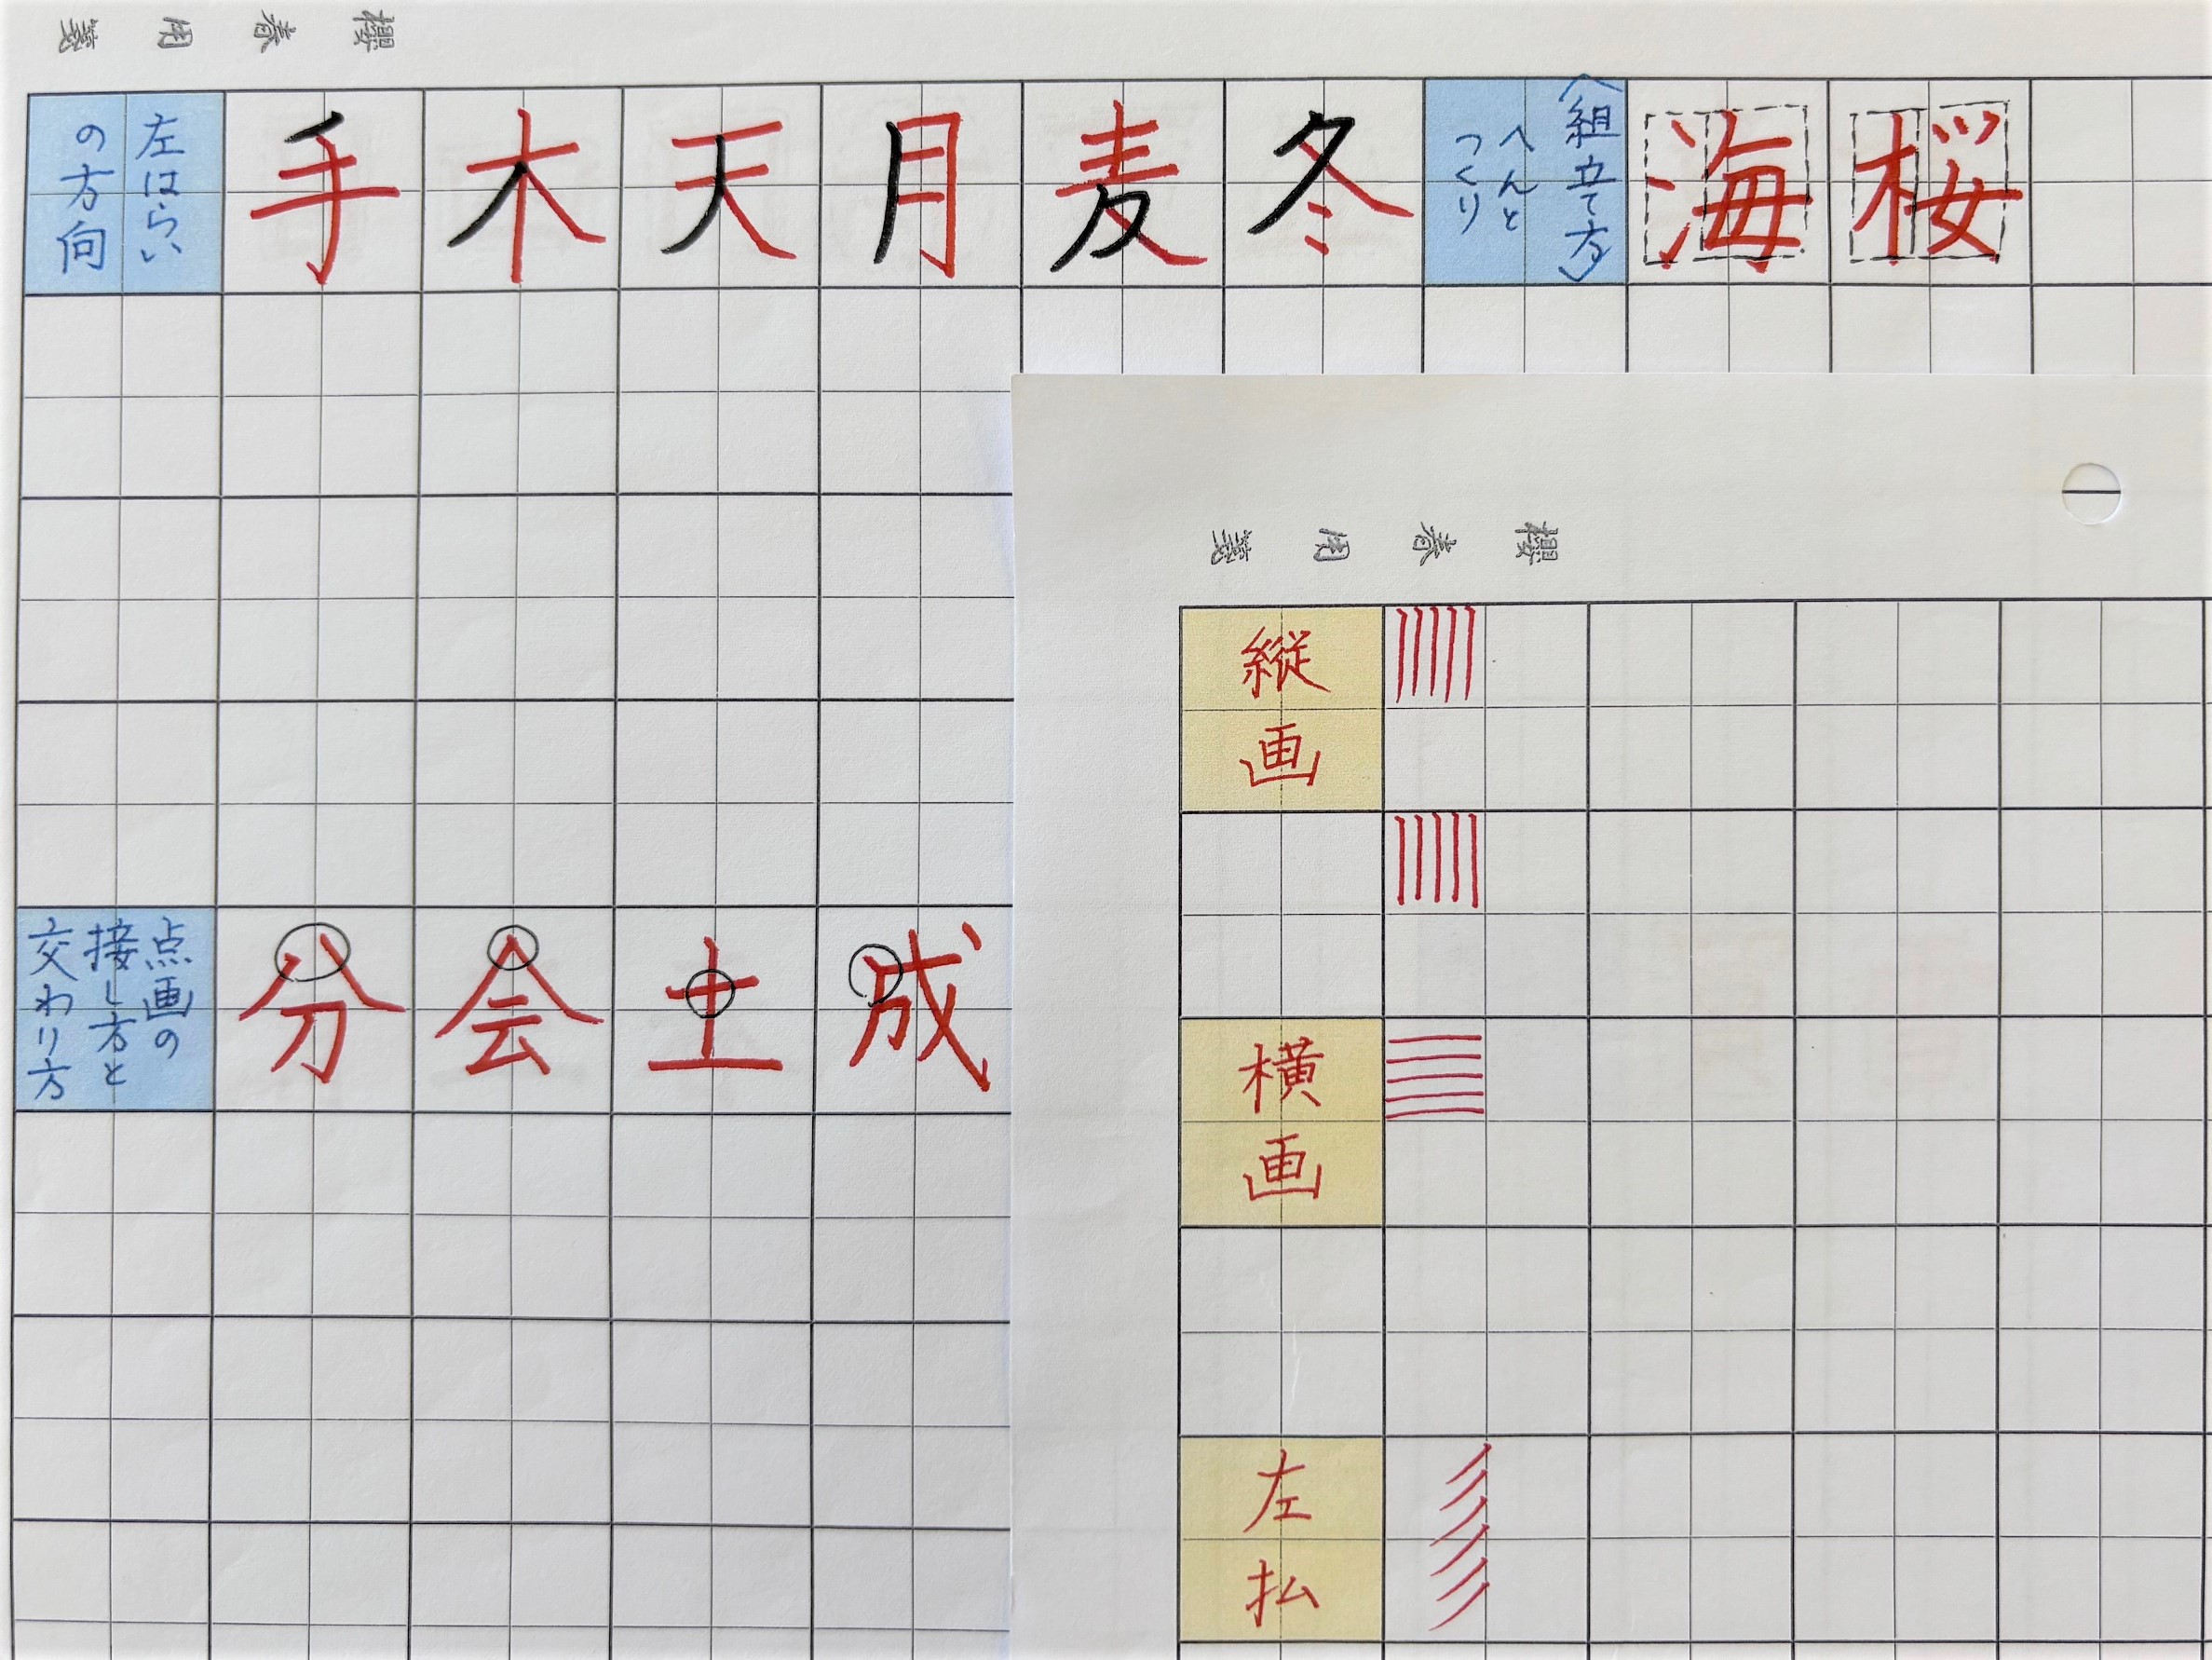 櫻春用箋
左はらい
の方向
手
木
天
月
麦
冬
〈組立て方〉
へんと
つくり
海
桜
点画の
接し方と
交わり方
分
会
土
成
櫻春用箋
縦画
横画
左払